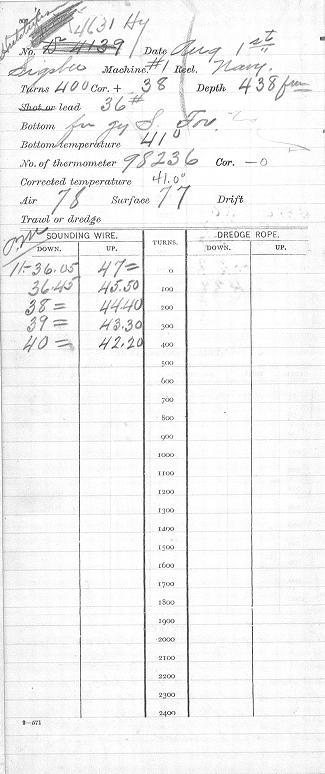 4631 Hy
No. D 4139 Date Aug 1st
Sigsbee Machine. #1 Reel. Navy.
Turns 400 Cor. + 38 Depth 438 fms
Shot or lead 36#
Bottom fne gy S. For.
Bottom temperature 41°
No. of thermometer 98236 Cor. —0
Corrected temperature 41.0°
Air 78 Surface 77 Drift
Trawl or dredge
P.M.
SOUNDING WIRE. TURNS. DREDGE ROPE.
DOWN. UP. DOWN. UP.
11-36.05 47= 0
36.45 45.50 100
38= 44.40 200
39= 43.30 300
40= 42.20 400
500
600
700
800
900
1000
1100
1200
1300
1400
1500
1600
1700
1800
1900
2000
2100
2200
2300
2400
9—571